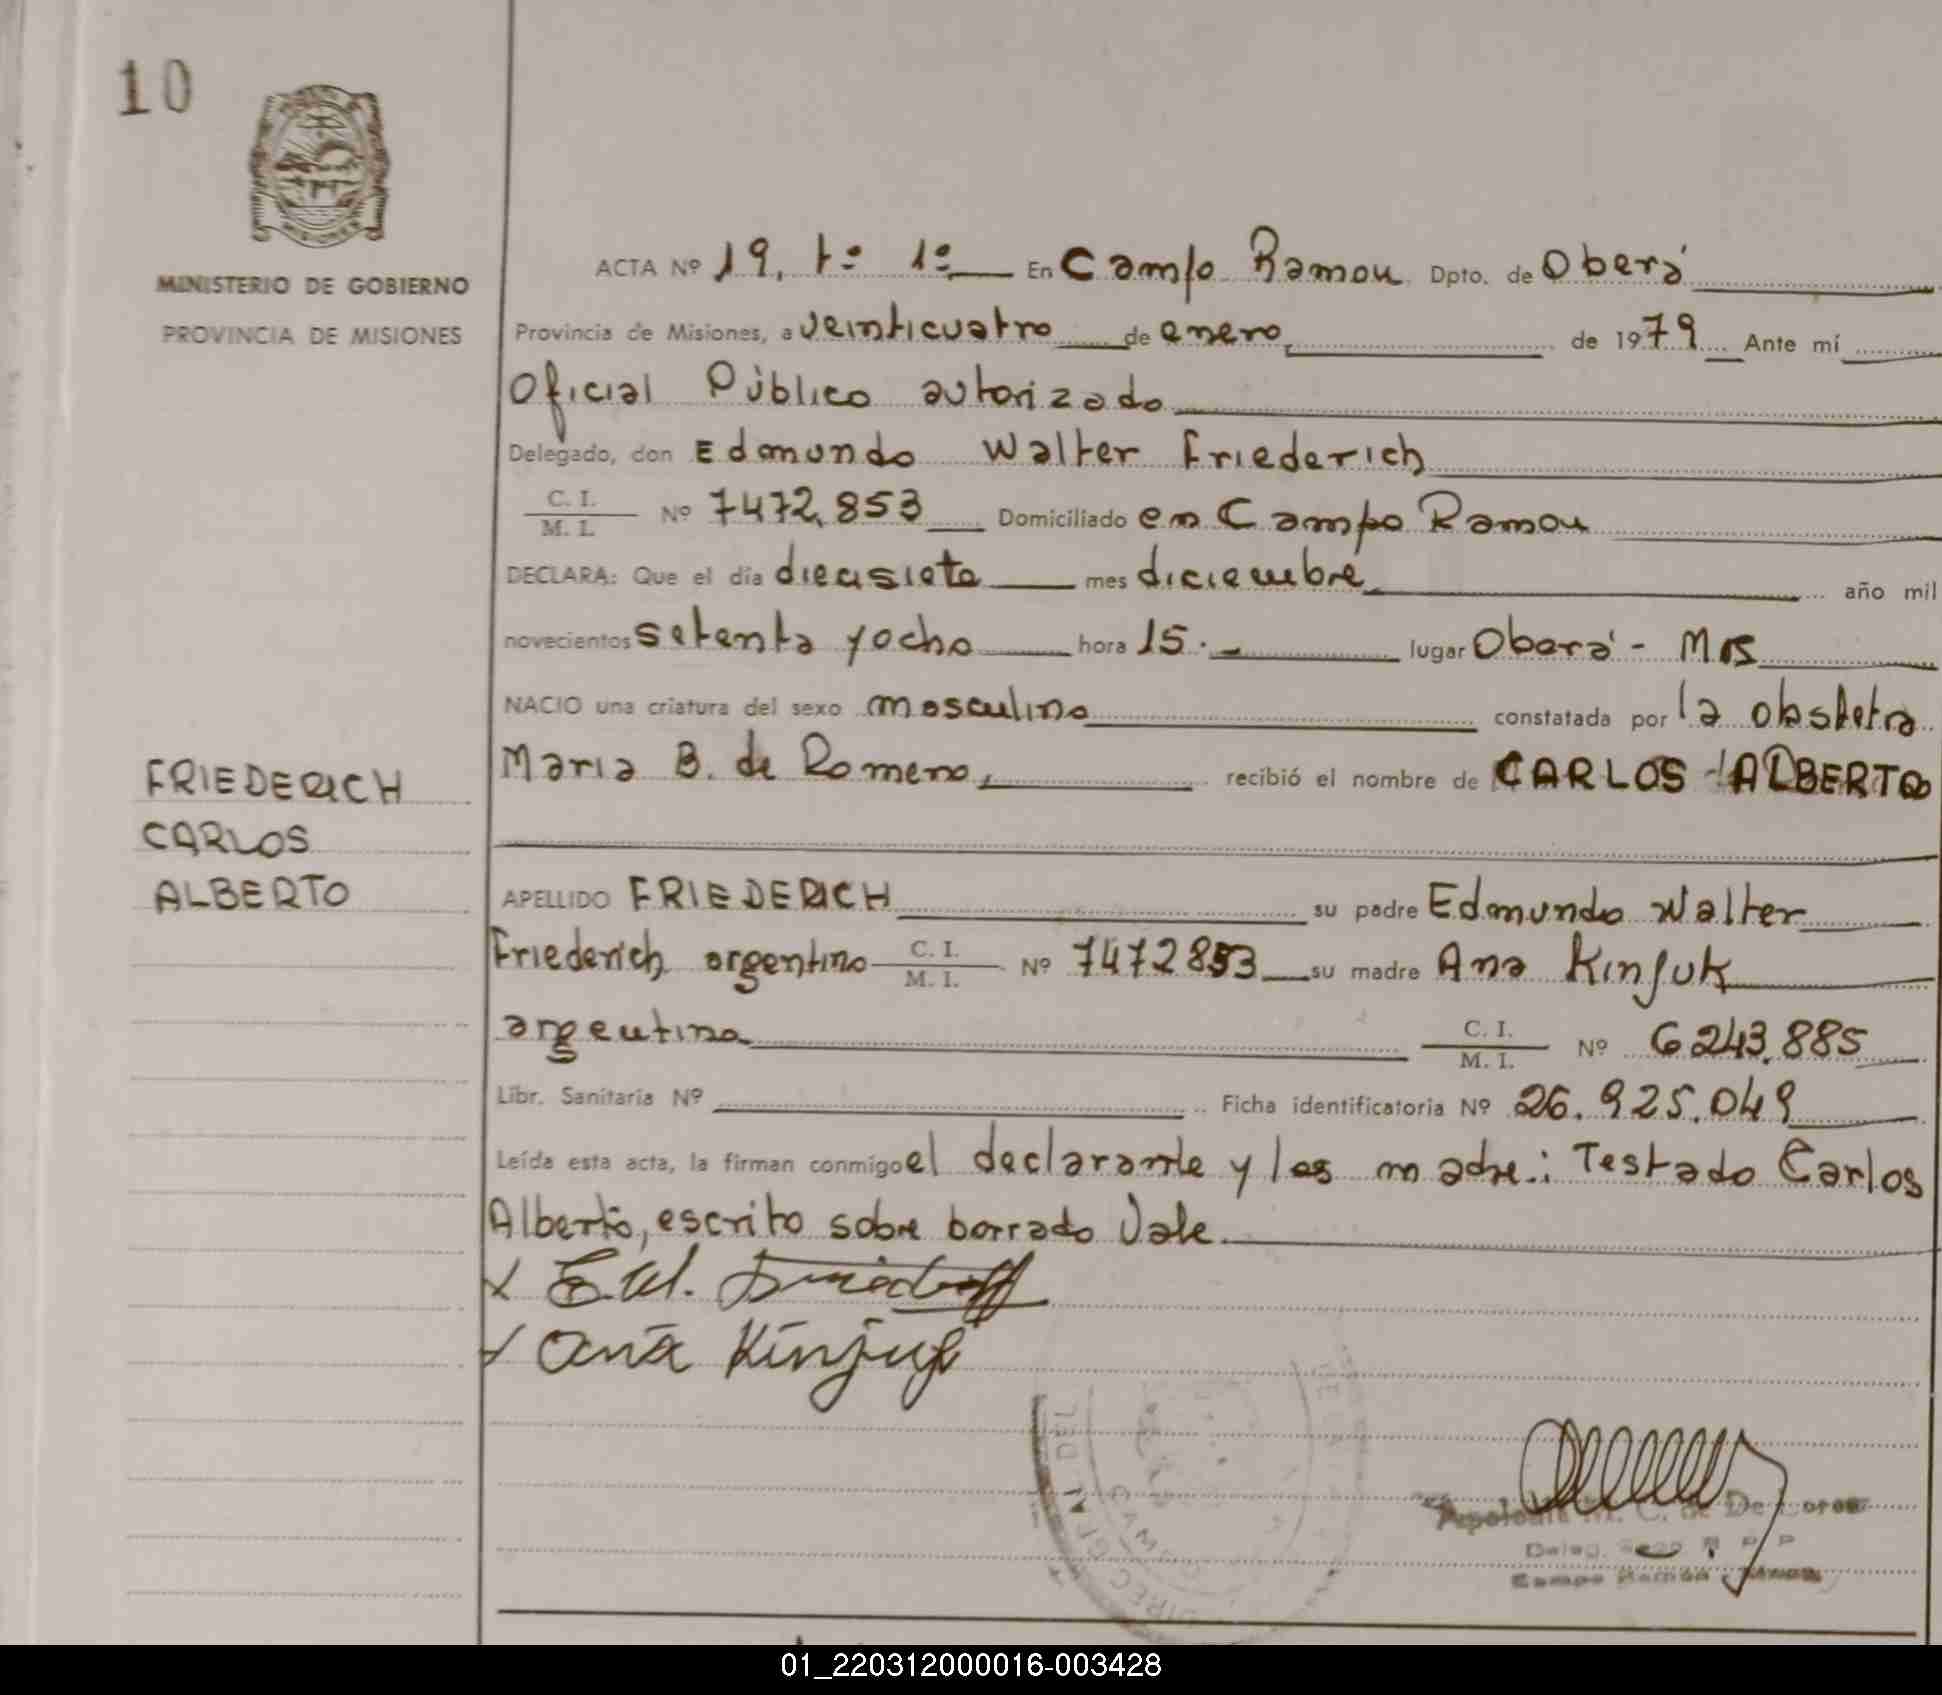 10
MINISTERIO DE GOBIERNO
PROVINCIA DE MISIONES
ACTA Nº 19, tº 1º En Campo Ramon Dpto. de Oberá
Provincia de Misiones, a veinticuatro de enero, de 1979 Ante mí
Oficial Público autorizado
Delegado, don Edmundo Walter Friederich
C. I.
M. I. Nº 7472.853 Domiciliado en Campo Ramon
DECLARA: Que el día diecisiete mes diciembre, año mil
novecientos setenta y ocho hora 15.- lugar Oberá - Mns
NACIO una criatura del sexo masculino constatada por la obstetra
Maria B. de Romero, recibió el nombre de CARLOS ALBERTO
FRIEDERICH
CARLOS
ALBERTO
APELLIDO FRIEDERICH su padre Edmundo Walter
Friederich, argentino C. I. M. I. Nº 7472853 su madre Ana Kinjuk
argentina C. I. M. I. Nº 6243.885
Libr. Sanitaria Nº Ficha identificatoria Nº 26.925.049
Leída esta acta, la firman conmigo el declarante y las madre.: Testado Carlos
Alberto, escrito sobre borrado Vale.
x E.W.
Ana
C. de
Campo Ramón
01_220312000016-003428